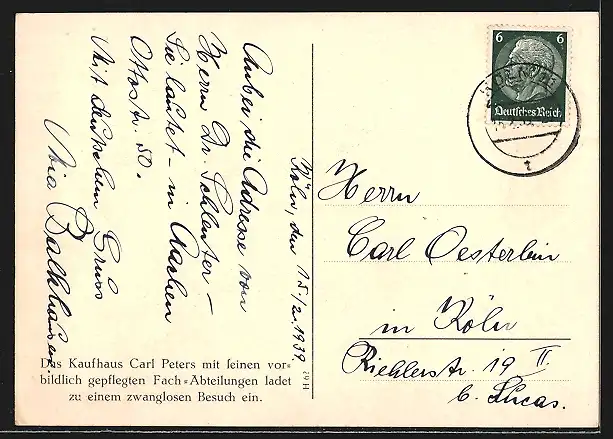 Köln, den 15./2. 1939.
Anbei die Adresse von
Herrn Dr. Schlenter –
Sie lautet – in Aachen
Ottostr. 50.
Mit deutschem Gruss
Balkhausen.
Das Kaufhaus Carl Peters mit seinen vor=
bildlich gepflegten Fach=Abteilungen ladet
zu einem zwanglosen Besuch ein.
H 62
6 6
Deutsches Reich
Herrn
Carl Oesterlein
in Köln
Riehlerstr. 19 II.
b. Lucas.